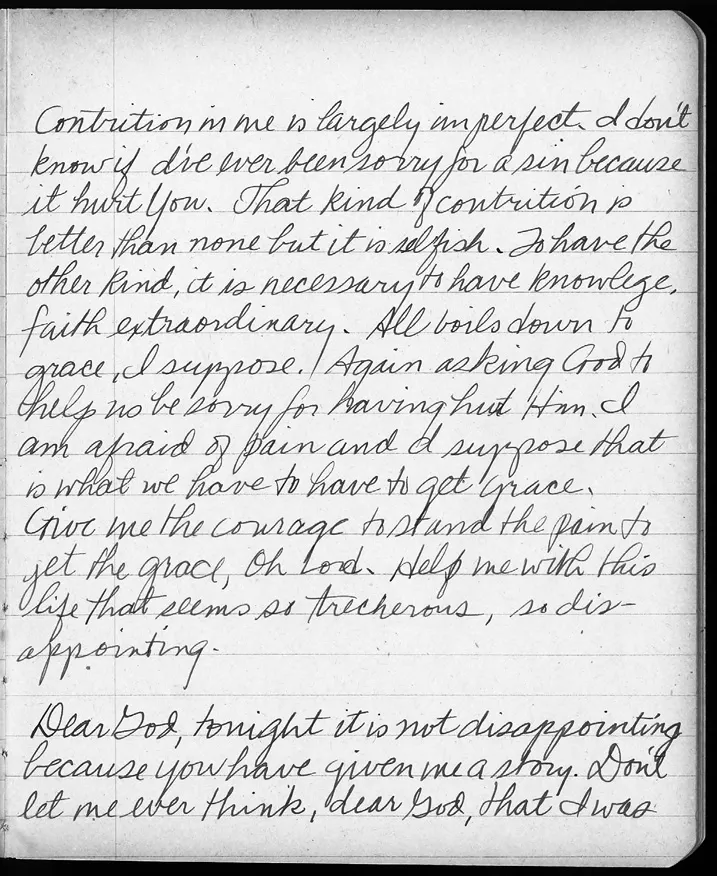 Contrition in me is largely imperfect. I don't
know if I've ever been sorry for a sin because
it hurt You. That kind of contrition is
better than none but it is selfish. To have the
other kind, it is necessary to have knowlege,
faith extraordinary. All boils down to
grace, I suppose. Again asking God to
help us be sorry for having hurt Him. I
am afraid of pain and I suppose that
is what we have to have to get grace.
Give me the courage to stand the pain to
get the grace, Oh Lord. Help me with this
life that seems so trecherous, so dis-
appointing.
Dear God, tonight it is not disappointing
because you have given me a story. Don't
let me ever think, dear God, that I was